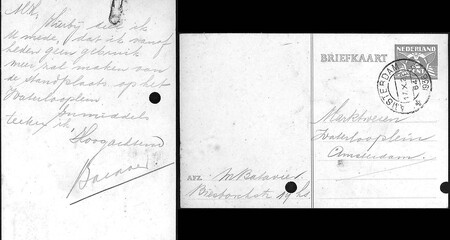 M.H. Hierbij deel ik
U mede, dat ik vanaf
heden geen gebruik
meer zal maken van
de standplaats op het
Waterlooplein
Inmiddels
teeken ik
Hoogachtend
Batavier
BRIEFKAART
NEDERLAND
AMSTERDAM
Marktwezen
Waterlooplein
Amsterdam.
AFZ. M Batavier
19 hs.